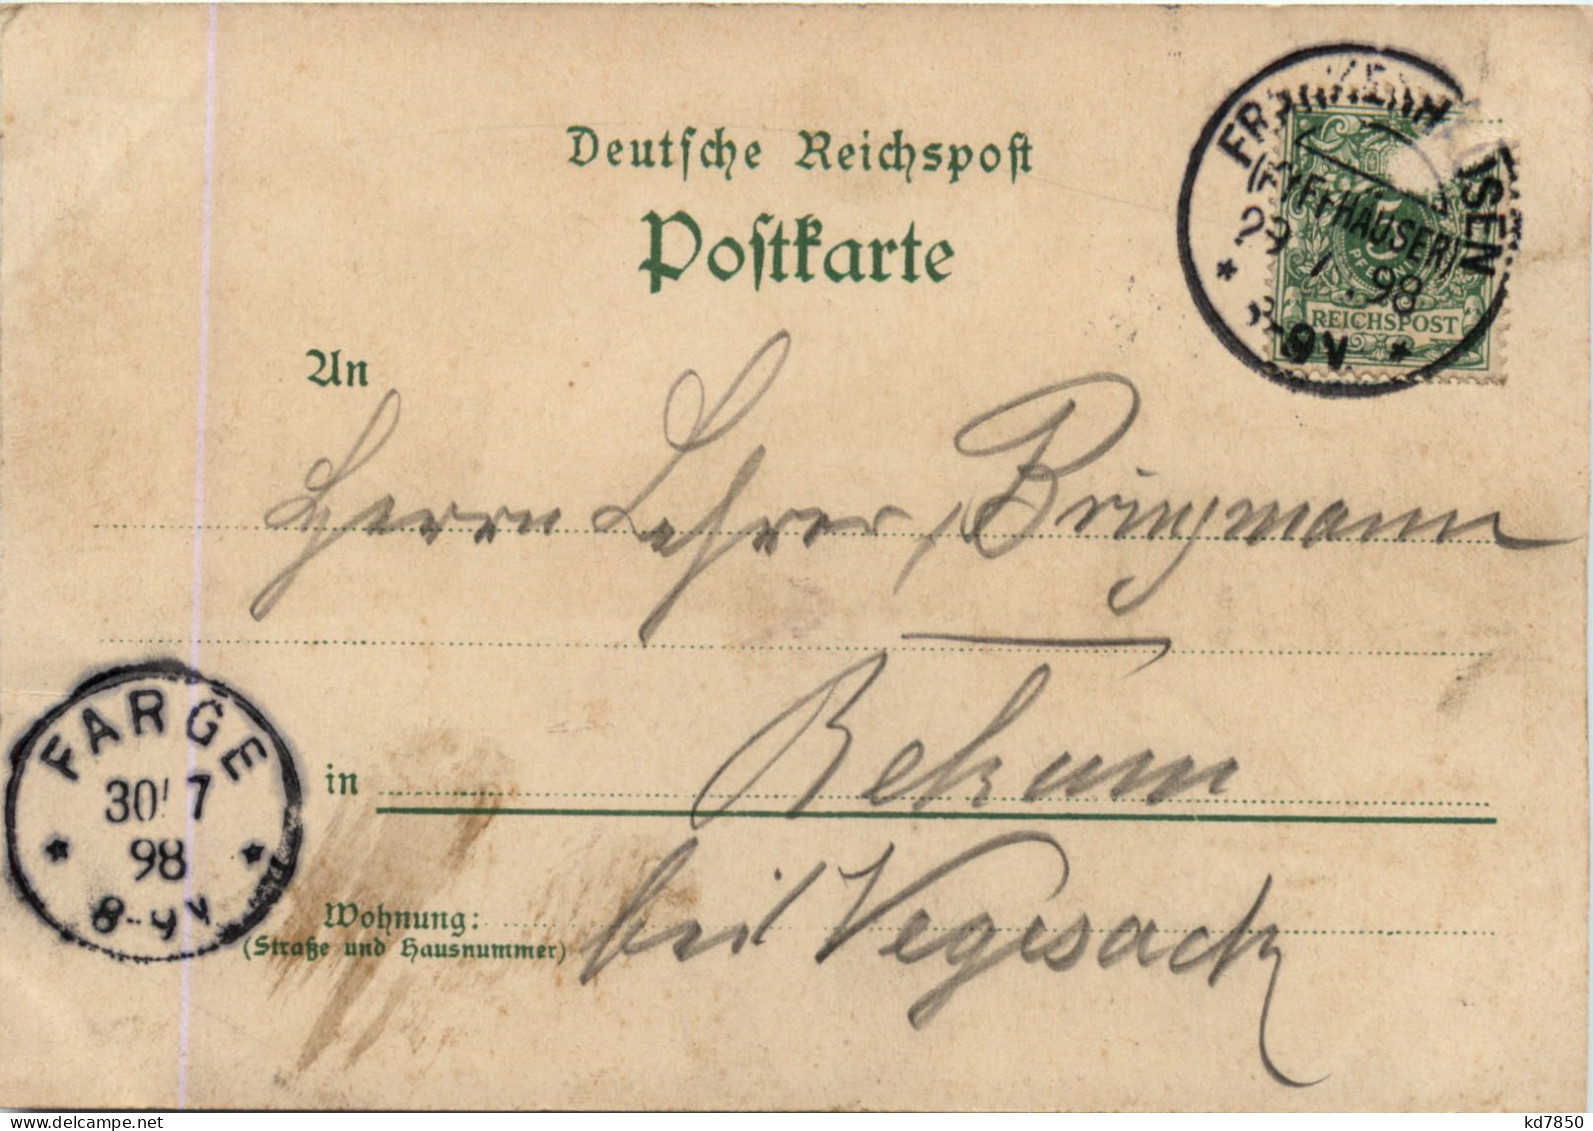 Deutsche Reichspost
Postkarte
FRANKENHAUSEN
(KYFFHÄUSER)
29 7 98
8-9V.
5
PF
REICHSPOST
An
Herrn Lehrer Bringmann
in Rekum
bei Vegesack
Wohnung:
(Straße und Hausnummer)
FARGE
30 7
98
8-9V
www.delcampe.net
kd7850